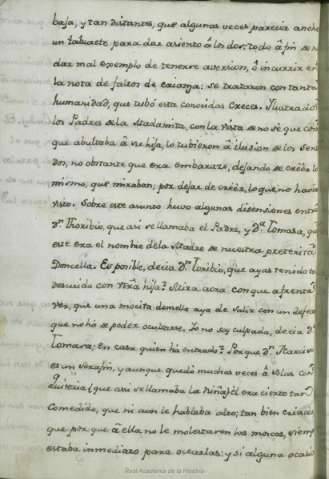 baja, y tan distantes, que algunas veces parecia ancho
un taburete para dar asiento á los dos: todo á fin de no
dar mal exemplo de tenerse aversion, ó incurrir en
la nota de faltos de crianza: se trataron con tanta
humanidad, que tubo esta conocidas Creces. Ilustrados
los Padres de la Madamita, con la vista de no sé que cosa
que abultaba á su hija, lo tubieron á ilusion de los Senti
dos, no obstante que era embarazo, dejando de creér lo
mismo, que miraban, por dejar de creér, lo que no havian
visto. Sobre este asunto huvo algunas disensiones entre
Dn. Thoribio, que asi se llamaba el Padre, y Da. Tomasa, que
este era el nombre de la Madre de nuestra preterita
Doncella. Es posible, decia Dn. Toribio, que ayas tenido tal
descuido con Vtra hija? Mira aora con que afrenta
ver, que una mocita doncella aya de salir con un defecto
que no ha de poder ocultarse. Yo no soy culpada, decia Da.
Tomasa; En casa quien há entrado? Porque Dn. Narciso
es un Serafin, y aunque quedó muchas veces á solas con
(que asi se llamaba la Niña) él era cierto tan
Comedido, que ni aun le hablaba alto; tan bien criado
que por que á ella no le molestaren los mocos, siempre
estaba inmediato para quitarlos: y si alguna ocasion
Real Academia de la Historia